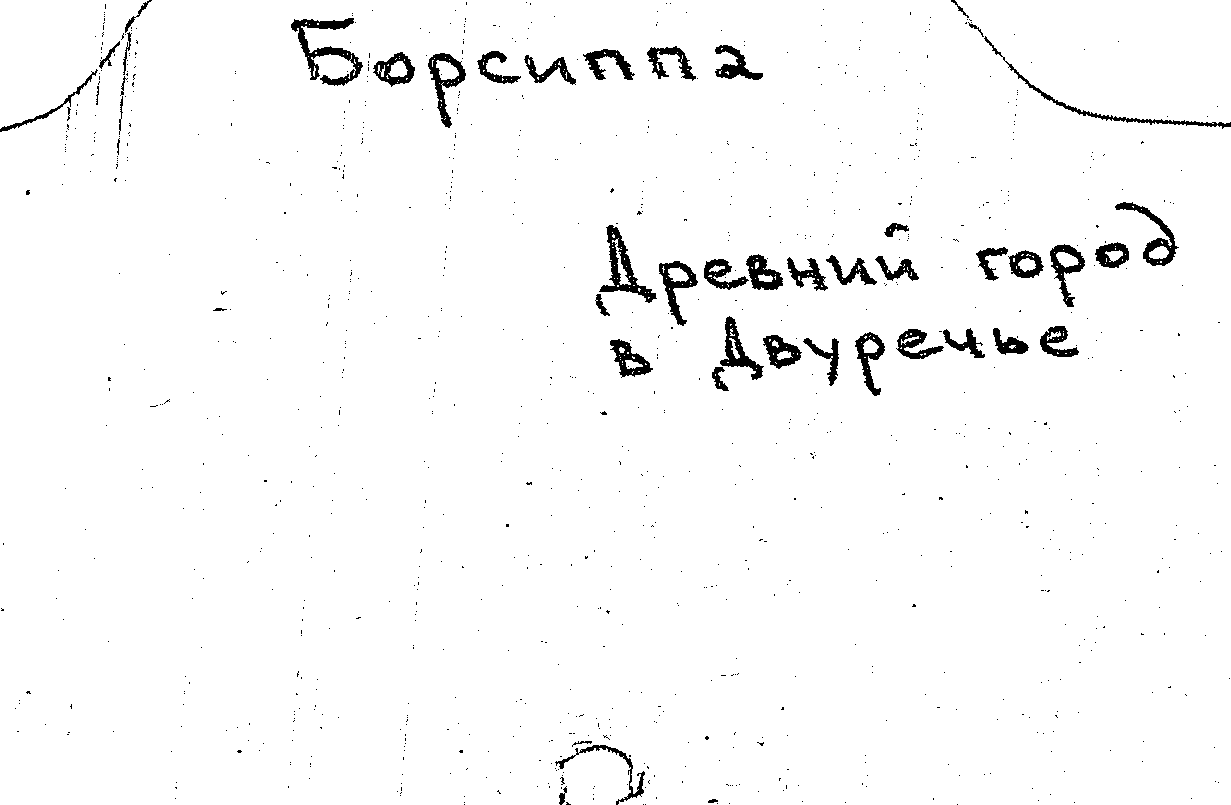 Борсиппа
Древний город
в Двуречье